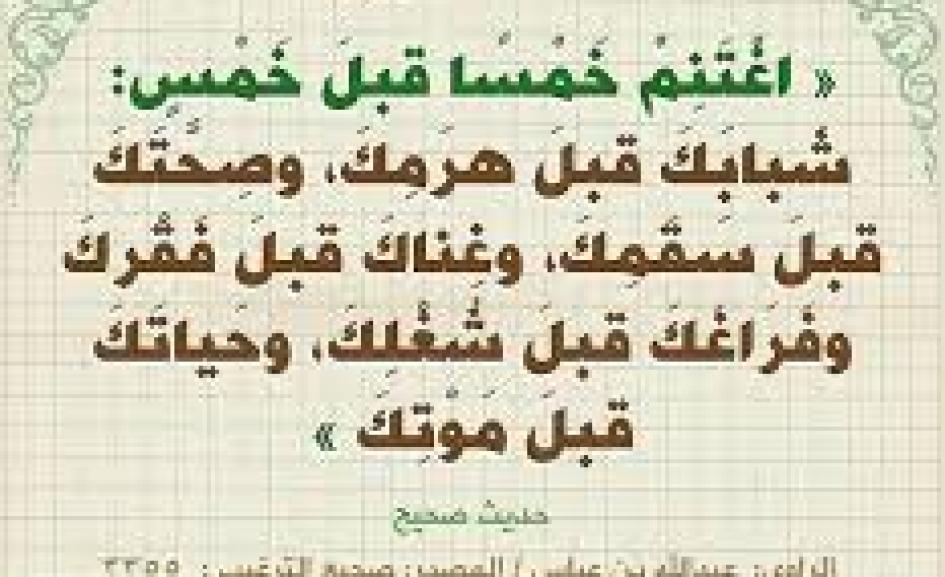 « اغْتَنِمْ خَمْسًا قبلَ خَمْسٍ:
شبابَكَ قبلَ هرَمِكَ، وصِحَّتَكَ
قبلَ سَقَمِكَ، وغِناكَ قبلَ فَقْرِكَ
وفَرَاغَكَ قبلَ شُغْلِكَ، وحَياتَكَ
قبلَ مَوْتِكَ »
حديث صحيح
الراوي: عبدالله بن عباس / المصدر: صحيح الترغيب: ٣٣٥٥